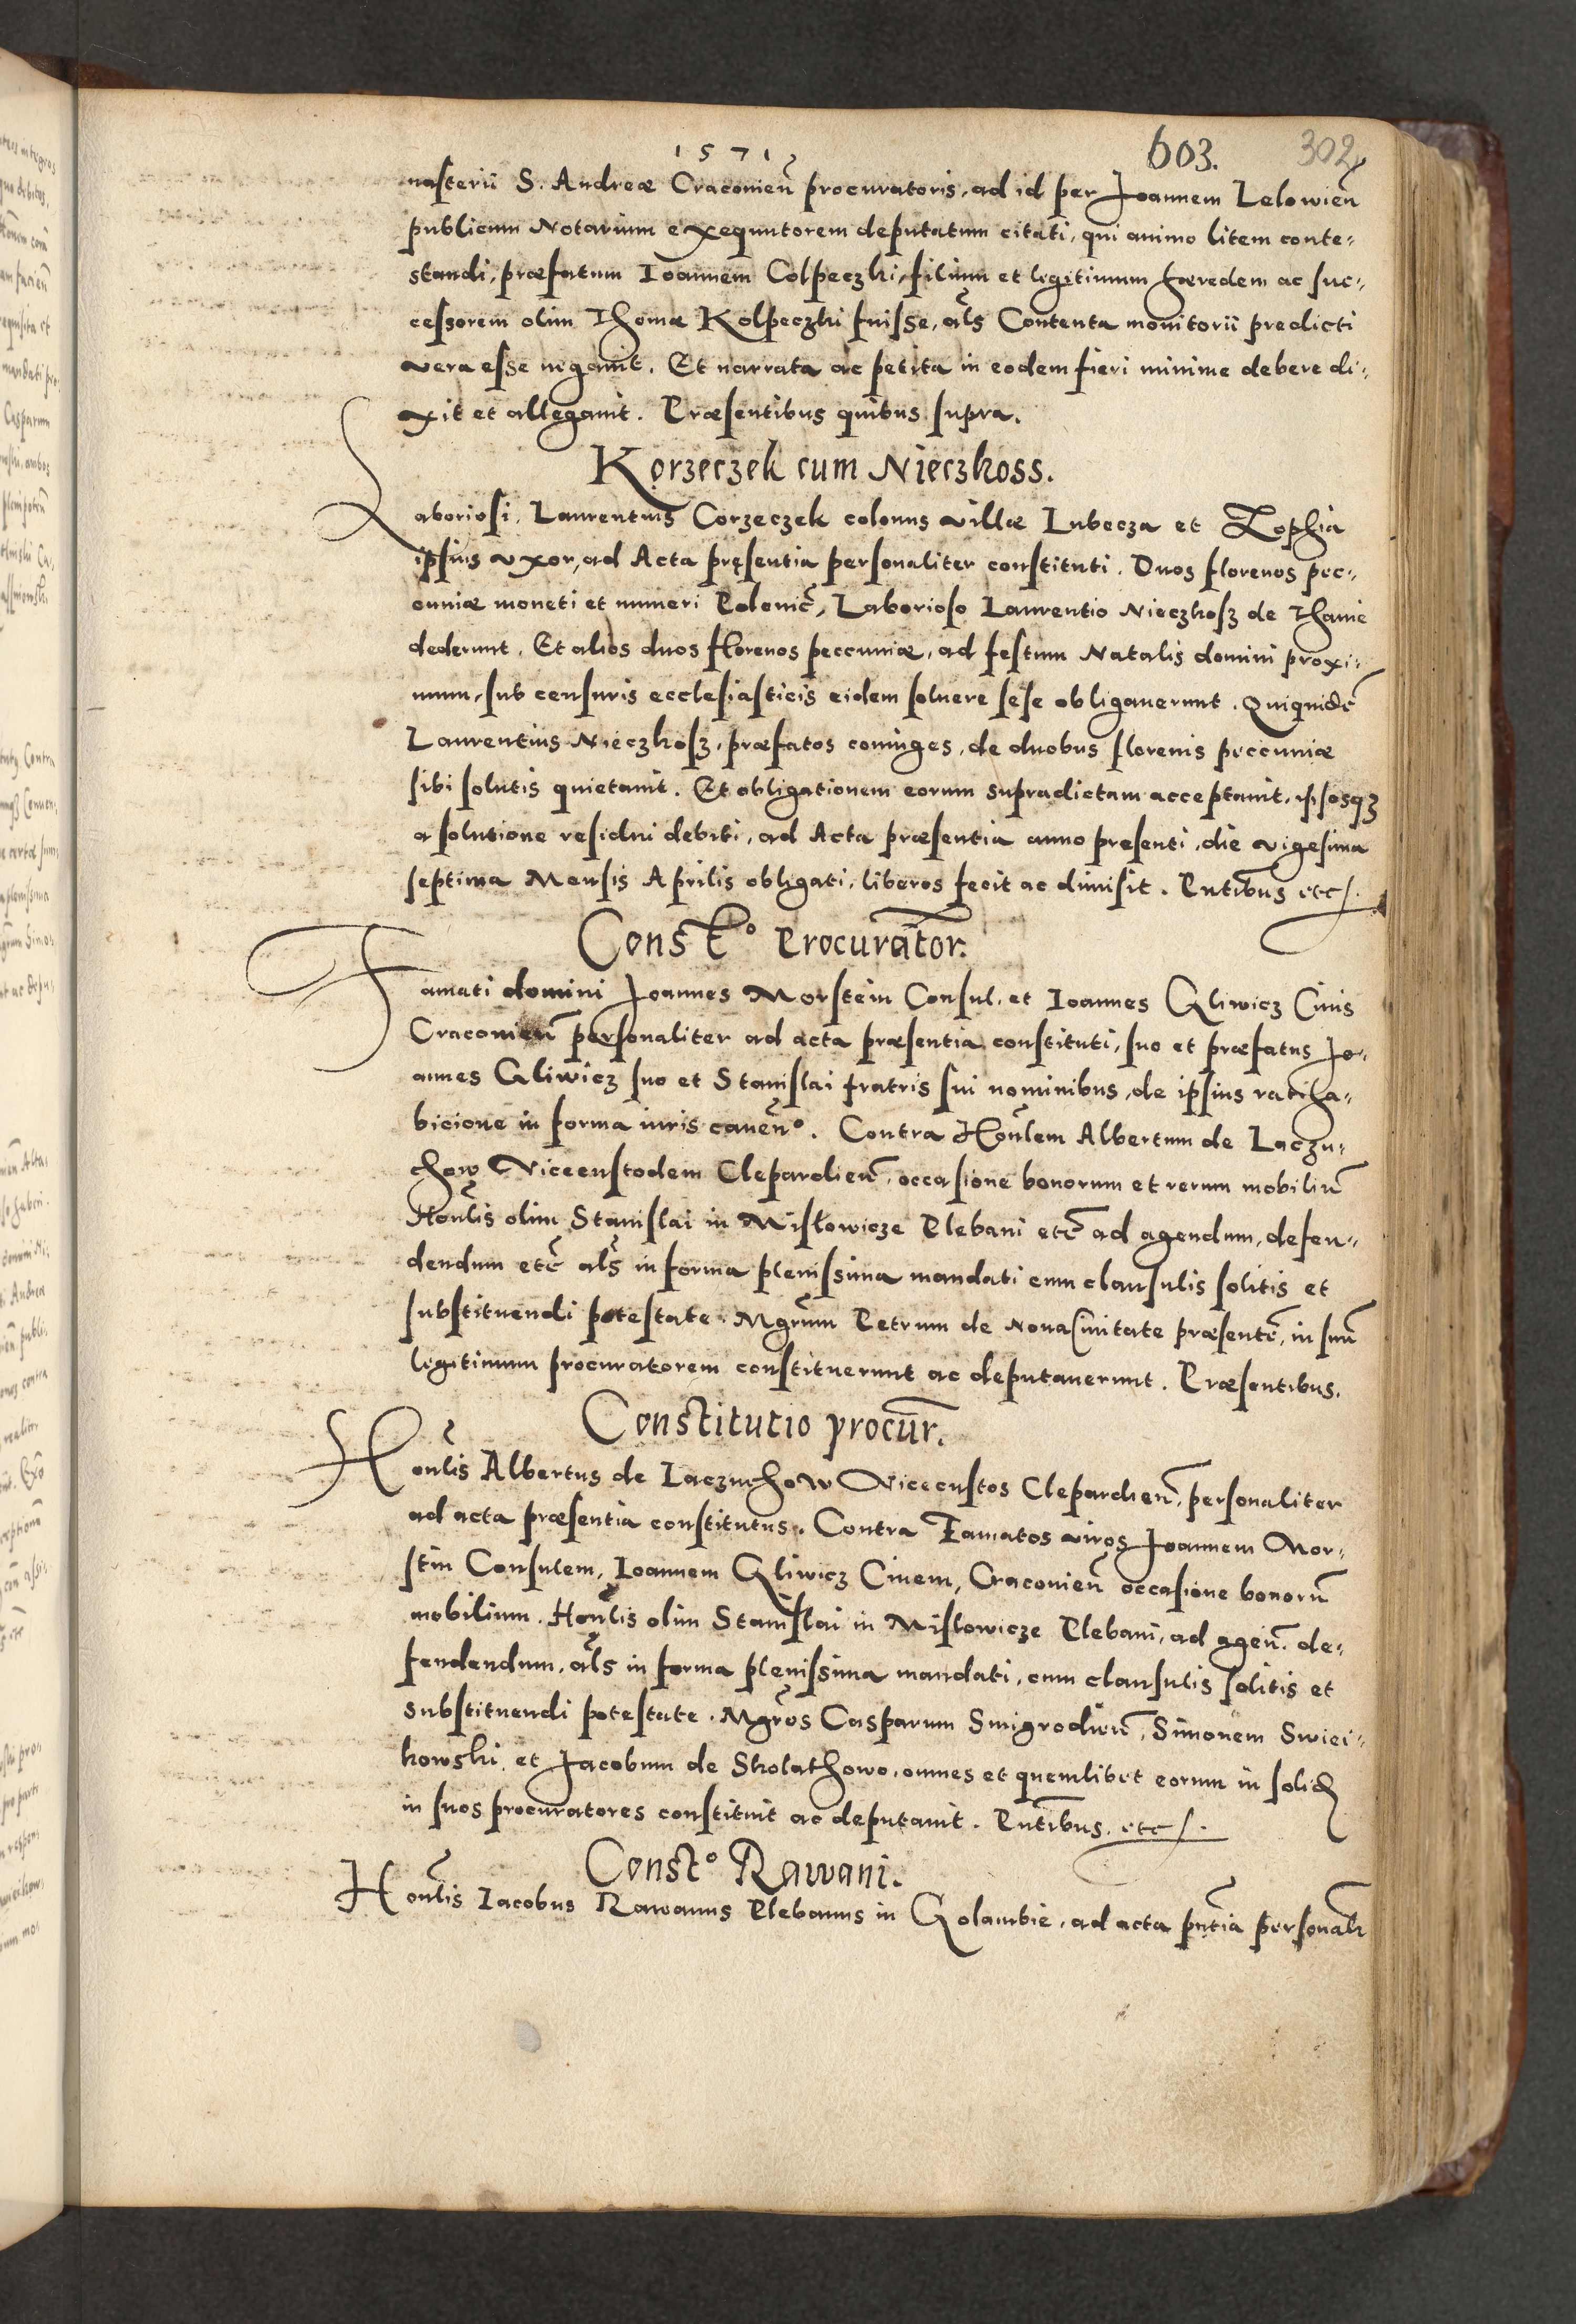 1571
603.
302
nasterii S. Andreæ Craconien̄ procuratoris, ad id per Joannem Lelowien̄
publicum Notarium exequutorem deputatum citati, qui animo litem conte-
standi, præfatum Ioannem Colpeczki, filium et legitimum hæredem ac suc-
cessorem olim Thomæ Kolpeczki fuisse, als Contenta monitorii predicti
vera esse negauit. Et narrata ac petita in eodem fieri minime debere di-
xit et allegauit. Præsentibus quibus supra.
Korzeczek cum Nieczkoss.
Laboriosi, Laurentius Corzeczek colonus villæ Lubecza et Zophia
ipsius vxor, ad Acta pręsentia personaliter constituti. Duos florenos pec-
cuniæ moneti et numeri Polonic̄, Laborioso Laurentio Nieczkosz de Thanie
dederunt. Et alios duos florenos peccuniæ, ad festum Natalis domini proxi-
mum, sub censuris ecclesiasticis eidem soluere sese obligauerunt. Quiquidē
Laurentius Nieczkosz, præfatos coniuges, de duobus florenis peccuniæ
sibi solutis quietauit. Et obligationem eorum supradictam acceptauit, ipsosqz
a solutione residui debiti, ad Acta præsentia anno presenti, die vigesima
septima Mensis Aprilis obligati, liberos fecit ac dimisit. Pntibus etc.
Const° Procurator.
Famati domini Joannes Morstein Consul, et Ioannes Gliwicz Ciuis
Cracouien̄ personaliter ad acta præsentia constituti, suo et præfatus Jo-
annes Gliwicz suo et Stanislai fratris sui nominibus, de ipsius ratiha-
bicione in forma iuris cauen°. Contra Honlem Albertum de Laczu-
chow Vicecustodem Clepardien̄, occasione bonorum et rerum mobiliū
Honlis olim Stanislai in Mislowicze Plebani etc̄ ad agendum, defen-
dendum etc̄ als in forma plenissima mandati cum clausulis solitis et
substituendi potestate. Mgrum Petrum de Nouaciuitate præsentē, in suū
legitimum procuratorem constituerunt ac deputauerunt. Præsentibus.
Constitutio procur.
Honlis Albertus de Laczuchow Vicecustos Clepardien̄, personaliter
ad acta præsentia constitutus. Contra Famatos viros Joannem Mor-
stin Consulem, Ioannem Gliwicz Ciuem, Cracouien̄ occasione bonorū
mobilium. Honlis olim Stanislai in Mislowicze Plebani, ad agen̄. de-
fendendum, als in forma plenissima mandati, cum clausulis solitis et
substituendi potestate. Mgros Casparum Smigrodien̄, Simonem Swiei-
kowski, et Jacobum de Skolathowo, omnes et quemlibet eorum in solid
in suos procuratores constituit ac deputauit. Pntibus, etc.
Const° Rawani.
Honlis Iacobus Rawanus Plebanus in Golambie, ad acta pntia personalr